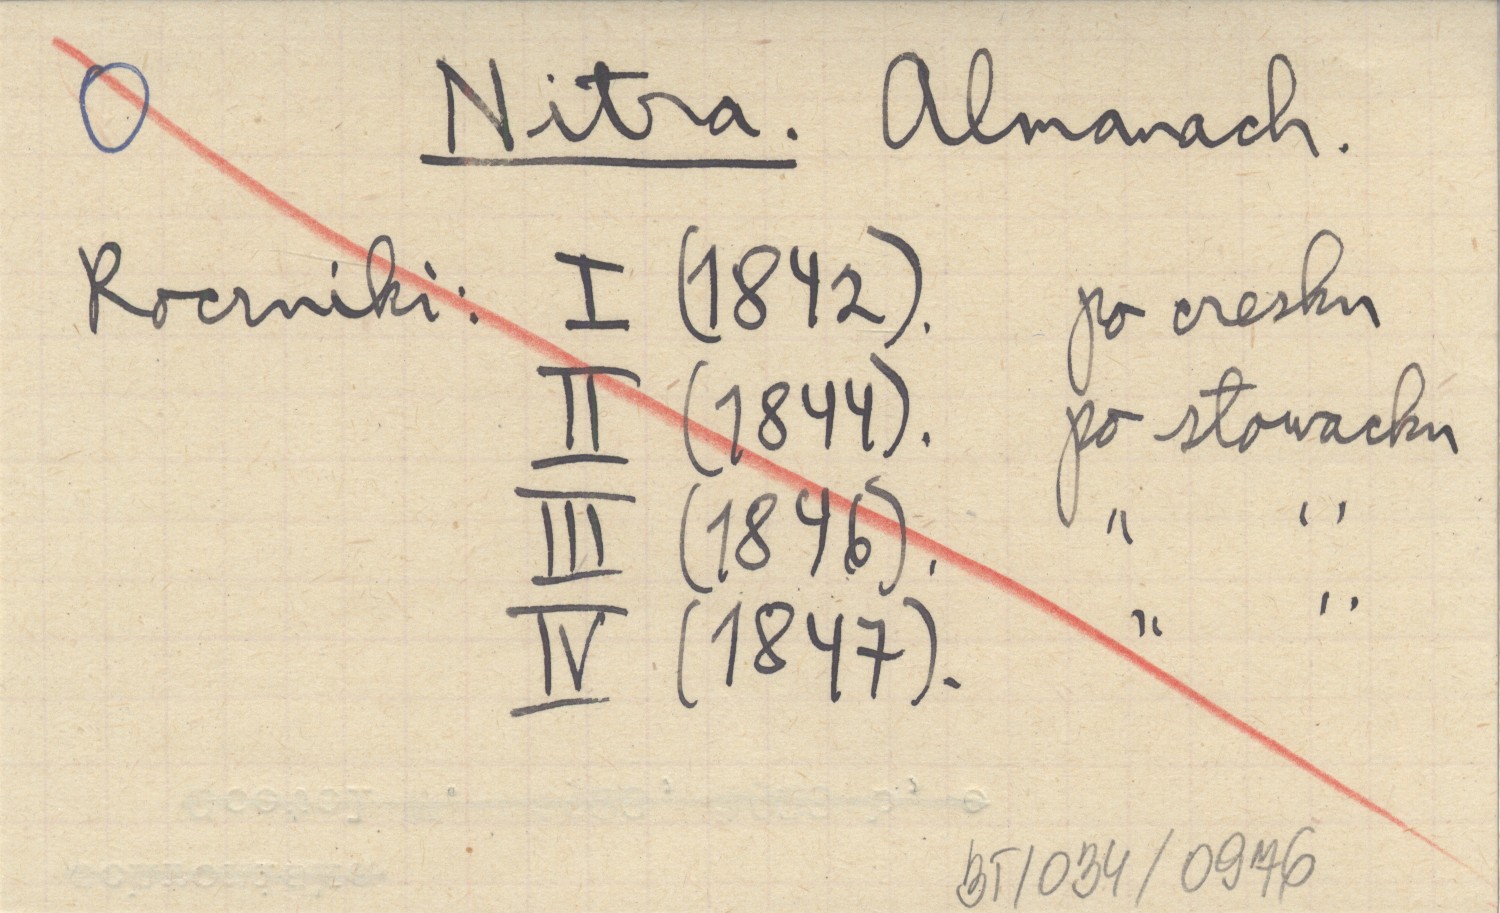 O Nitra. Almanach.
Roczniki: I (1842). po czesku
II (1844). po słowacku
III (1846). " "
IV (1847). " "
BT/034/0976